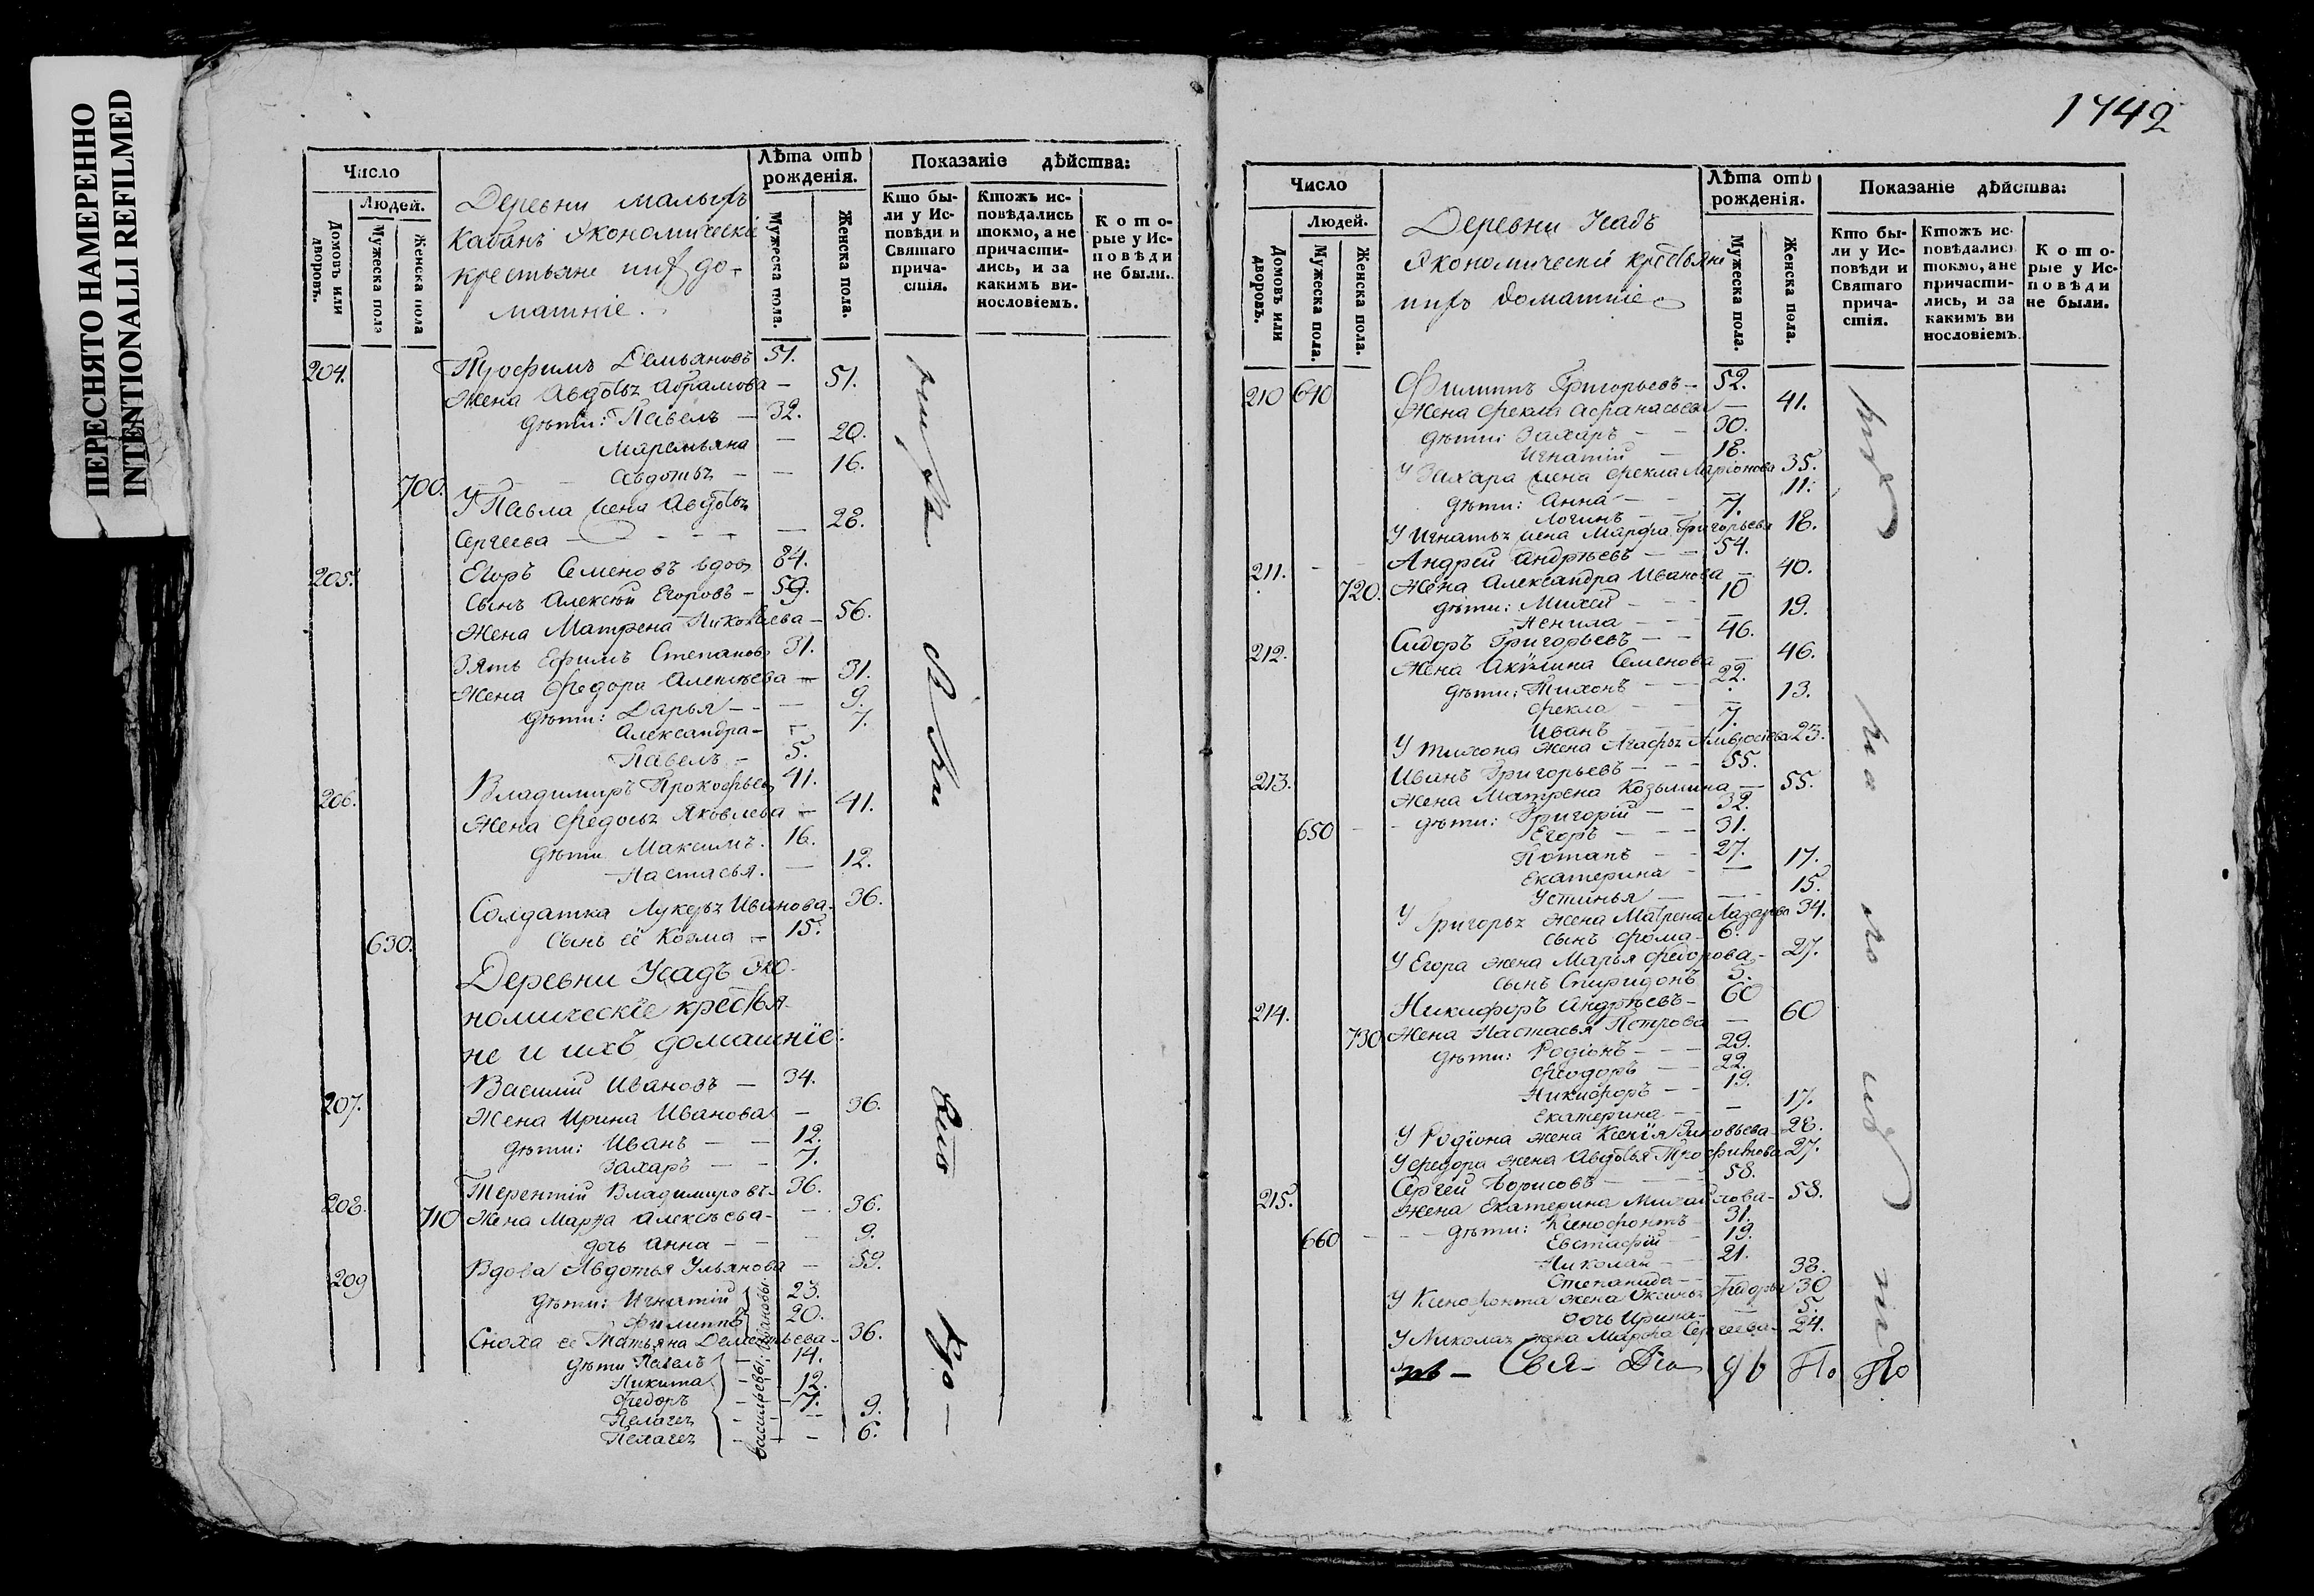 ПЕРЕСНЯТО НАМЕРЕННО
INTENTIONALLI REFILMED
Число
Людей.
Домовъ или дворовъ.
Мужеска пола
Женска пола
Деревни малыхъ
Кабанъ Экономически
крестьяне ихъ до-
машніе.
Лѣта отъ рожденія.
Мужеска пола.
Женска пола.
Показаніе дѣйства:
Кто бы-
ли у Ис-
повѣди и
Святаго
прича-
стія.
Ктожъ ис-
повѣдались
токмо, а не
причасти-
лись, и за
какимъ ви-
нословіемъ.
Кото-
рые у Ис-
повѣди
не были.
204. Трофимъ Демьяновъ 51.
Жена Авдотья Абрамова — 51.
Дѣти: Павелъ — 32.
Маремьяна — 20.
700. Авдотья — — 16.
У Павла жена Авдотья
Сергеева — 28.
205. Егоръ Семеновъ вдов 84.
Сынъ Алексѣй Егоровъ — 59.
Жена Матрена Николаева — 56.
Зять Ефимъ Степановъ 31.
Жена Федора Алексѣева — 31.
Дѣти: Дарья — — 9.
Александра — 7.
Павелъ — 5.
206. Владимиръ Прокофьев 41.
Жена Федосья Яковлева — 41.
Дѣти Максимъ. 16.
Настасья. — 12.
Солдатка Лукерья Иванова. 36.
630. Сынъ её Козма — 15.
Деревни Усадъ Эко-
номическіе крестья-
не и ихъ домашніе:
207. Василий Ивановъ — 34.
Жена Ирина Иванова — 36.
Дѣти: Иванъ — — 12.
Захаръ — — 7.
208. Терентій Владимировъ 36.
710 Жена Марѳа Алексѣева — 36.
дочь Анна — — 9.
209 Вдова Авдотья Ульянова — 59.
Дѣти: Игнатій 23.
Филиппъ 20.
Ивановы
Сноха ее Татьяна Дементьева 36.
Дѣти Павелъ — 14.
Никита — 12.
Федоръ — 7.
Пелагея — — 9.
Пелагея — — 6.
Васильевы
1742
Число
Людей.
Домовъ или дворовъ.
Мужеска пола.
Женска пола.
Деревни Усадъ
Экономически крестьяне
ихъ домашніе
Лѣта отъ рожденія.
Мужеска пола.
Женска пола.
Показаніе дѣйства:
Кто бы-
ли у Ис-
повѣди и
Святаго
прича-
стія.
Ктожъ ис-
повѣдались
токмо, а не
причасти-
лись, и за
какимъ ви
нословіемъ.
Кото-
рые у Ис-
повѣди
не были.
210 640 Филиппъ Григорьевъ — 52.
Жена Фекла Афанасьева — 41.
Дѣти: Захаръ — — 30.
Игнатій — 18.
У Захара жена Фекла Ларіонова 35.
Дѣти: Анна — — 11.
Логинъ — — 7.
У Игнатья жена Марфа Григорьева 18.
211. Андрей Андрѣевъ — — 54.
720. Жена Александра Иванова — 40.
Дѣти: Михей — — 10
Ненила — — 19.
212. Сидоръ Григорьевъ — — 46.
Жена Акулина Семенова — 46.
Дѣти: Тихонъ — — 22.
Фекла — — 13.
Иванъ — — 7.
У Тихона жена Агафья 23.
213. Иванъ Григорьевъ — — 55.
Жена Матрена Козьмина — 55.
650 Дѣти: Григорій — — 32.
Егоръ — — 31.
Потапъ — — 27.
Екатерина — — 17.
Устинья — — 15.
У Григорья жена Матрена Лазарева 34.
сынъ Фома — 6.
У Егора жена Марья Федорова — 27.
сынъ Спиридонъ 5.
214. Никифоръ Андрѣевъ — 60
730 Жена Настасья Петрова — 60
Дѣти: Родіонъ — — 29.
Ѳеодоръ — — 22.
Никифоръ — — 19.
Екатерина — — 17.
У Родіона жена Ксенія 28.
У Федора жена Авдотья Трофимова 27.
215. Сергей Борисовъ — 58.
Жена Екатерина Михайлова — 58.
660 Дѣти: Ксенофонтъ 31.
Евстафій — 19.
Николай — 21.
Степанида — 38.
У Ксенофонта жена 30
дочь Ирина — 5.
У Николая жена Марфа Сергеева — 24.